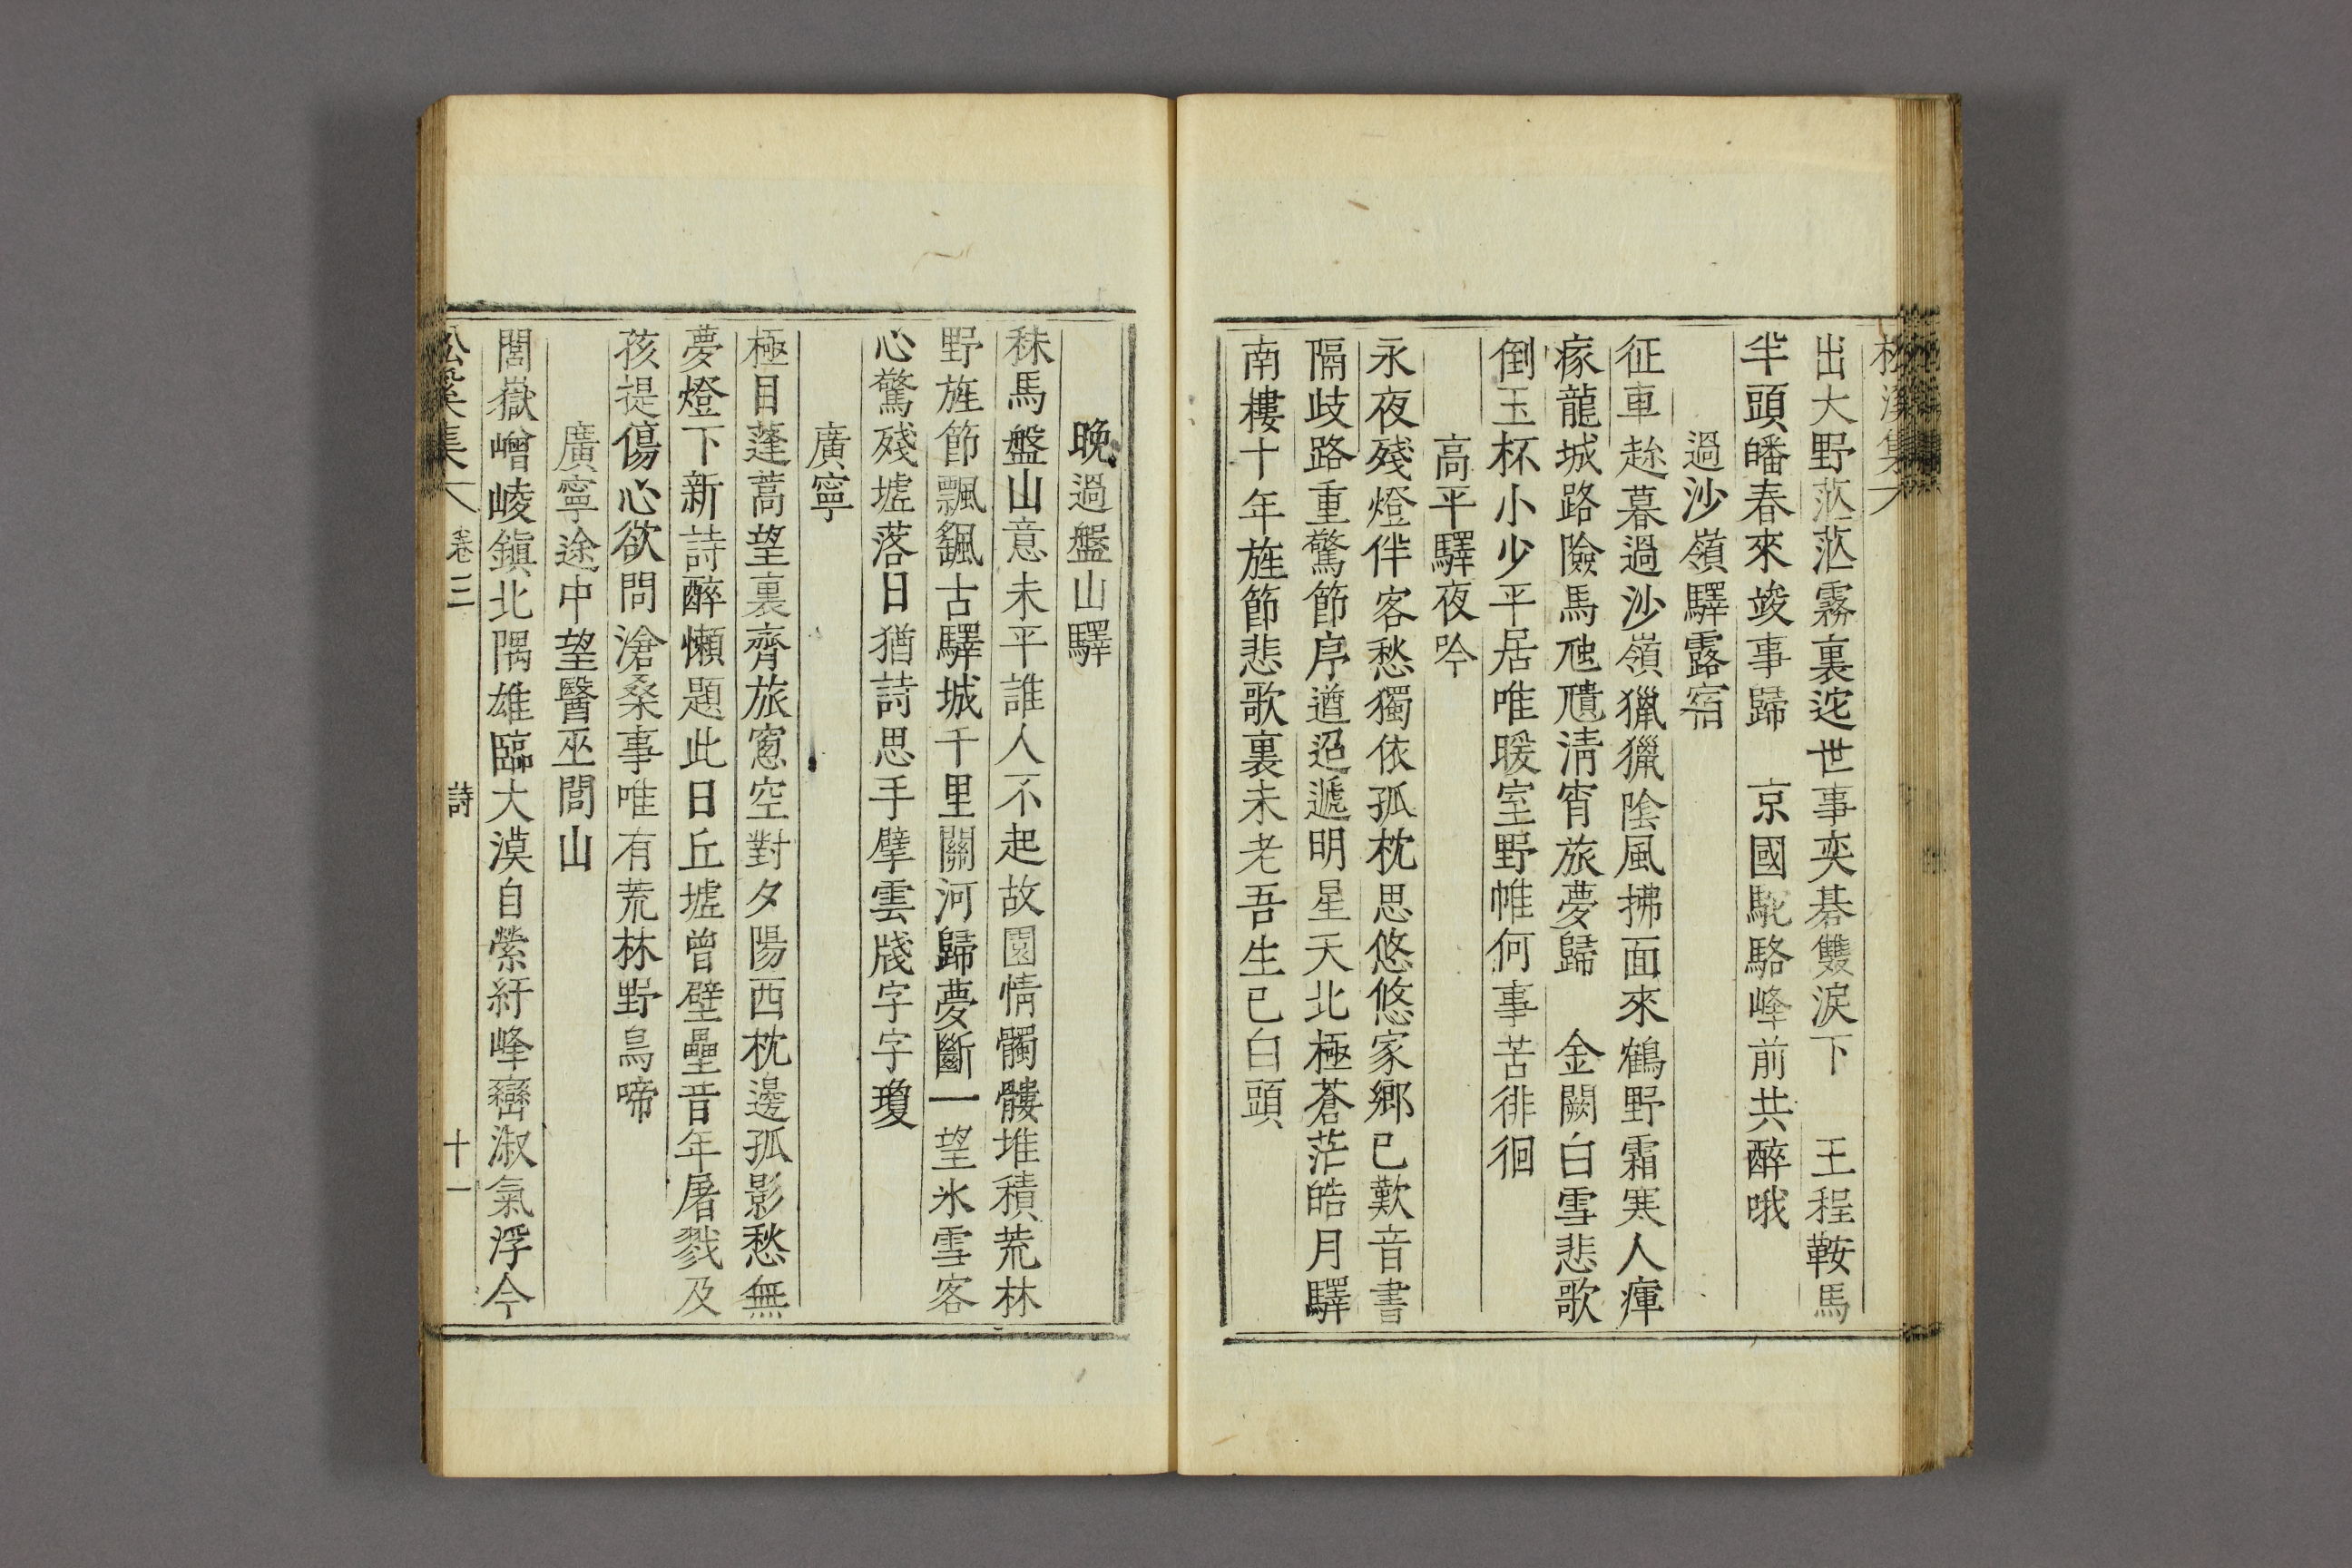 松溪集
出大野茫茫霧裏迱世事奕碁雙淚下　王程鞍馬
半頭皤春來竣事歸　京國駝駱峰前共醉哦
過沙嶺驛露宿
征車趂暮過沙嶺獵獵陰風拂面來鶴野霜寒人瘴
瘃龍城路險馬虺隤淸宵旅夢歸　金闕白雪悲歌
倒玉杯小少平居唯暖室野帷何事苦徘徊
高平驛夜吟
永夜殘燈伴客愁獨依孤枕思悠悠家鄕已歎音書
隔歧路重驚節序遒迢遞明星天北極蒼茫皓月驛
南樓十年旌節悲歌裏未老吾生已白頭
晚過盤山驛
秣馬盤山意未平誰人不起故園情髑髏堆積荒林
野旌節飄颻古驛城千里關河歸夢斷一望氷雪客
心驚殘墟落日猶詩思手擘雲牋字字瓊
廣寧
極目蓬蒿望裏齊旅窓空對夕陽西枕邊孤影愁無
夢燈下新詩醉懶題此日丘墟曾壁壘昔年屠戮及
孩提傷心欲問滄桑事唯有荒林野鳥啼
廣寧途中望醫巫閭山
閭嶽嶒崚鎭北隅雄臨大漠自縈紆峰巒淑氣浮今
松溪集　卷三　詩　十一